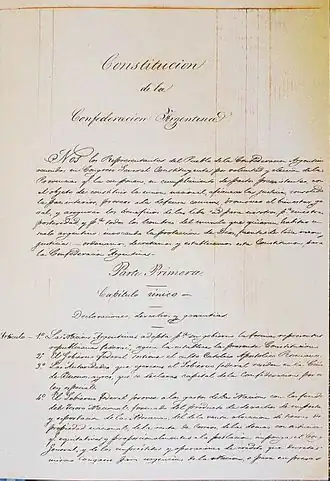 Constitucion
de la
Confederacion Argentina
Nós los Representantes del Pueblo de la Confederacion Argentina
reunidos en Congreso General Constituyente por voluntad y eleccion de las
Provincias que la componen, en cumplimiento de pactos preexistentes, con
el objeto de constituir la union nacional, afianzar la justicia, consolidar
la paz interior, proveer á la defensa comun, promover el bienestar gene-
ral, y asegurar los beneficios de la libertad para nosotros, pª nuestra
posteridad y pª todos los hombres del mundo que quieran habitar en el
suelo argentino: invocando la proteccion de Dios, fuente de toda razon y
justicia: ordenamos, decretamos y establecemos esta Constitucion, para
la Confederacion Argentina.
Parte Primera
Capítulo único
Declaraciones, derechos y garantías
Artículo 1º La Nacion Argentina adopta pª su gobierno la forma representativa
republicana federal, segun la establece la presente Constitucion.
2º El Gobierno federal sostiene el culto Católico Apostólico Romano.
3º Las Autoridades que ejercen el Gobierno federal residen en la Ciudad
de Buenos Ayres, que se declara capital de la Confederacion por una
ley especial.
4º El Gobierno federal provee á los gastos de la Nacion con los fondos
del Tesoro Nacional, formado del producto de derechos de importacion
y exportacion de las Aduanas, del de la venta ó locacion de tierras de
propiedad nacional, de la renta de Correos, de las demas contribuciones
q. equitativa y proporcionalmente á la poblacion imponga el Congreso
General, y de los empréstitos y operaciones de crédito que decrete el
mismo Congreso para urgencias de la Nacion, ó para empresas